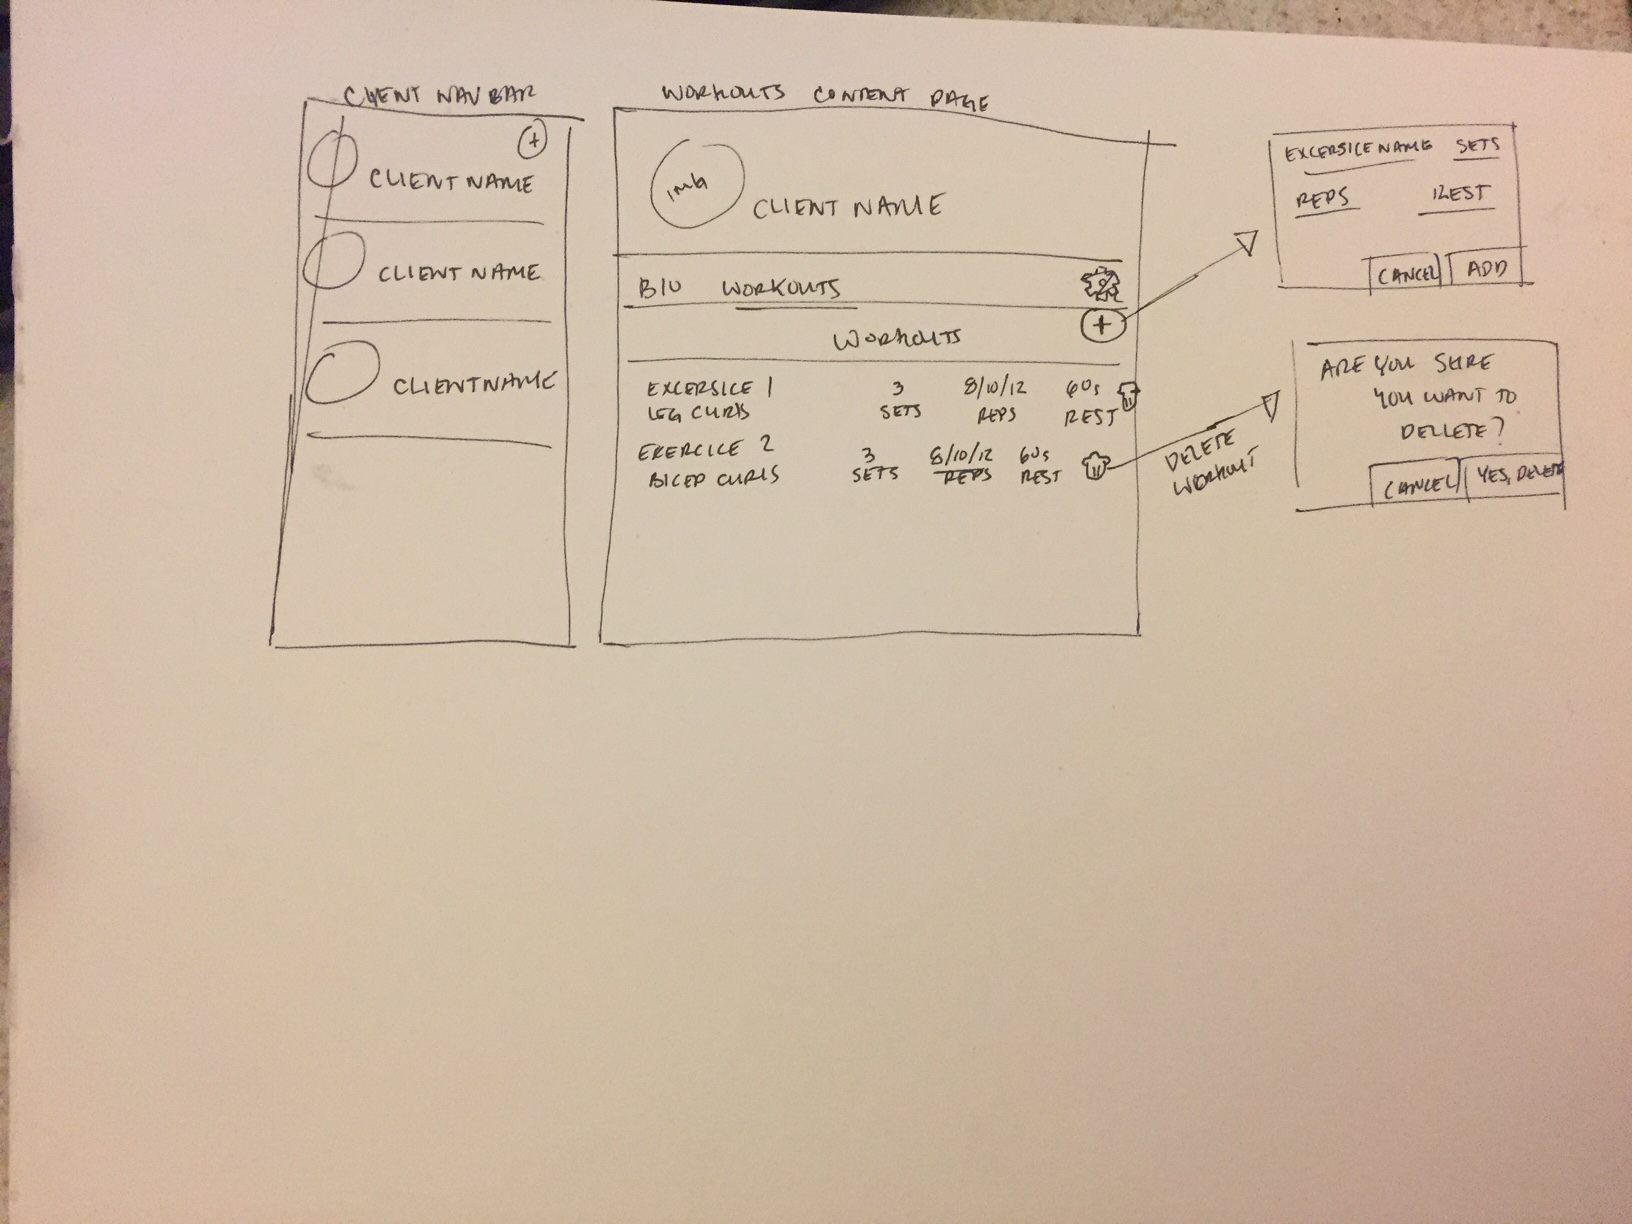 CLIENT NAV BAR
+
CLIENT NAME
CLIENT NAME
CLIENT NAME
WORKOUTS CONTENT PAGE
img
CLIENT NAME
BIO WORKOUTS
WORKOUTS +
EXCERSICE 1 3 8/10/12 60s
LEG CURLS SETS REPS REST
EXERCICE 2 3 8/10/12 60s
BICEP CURLS SETS REPS REST
DELETE
WORKOUT
EXCERSICE NAME SETS
REPS REST
CANCEL ADD
ARE YOU SURE
YOU WANT TO
DELETE?
CANCEL YES, DELETE